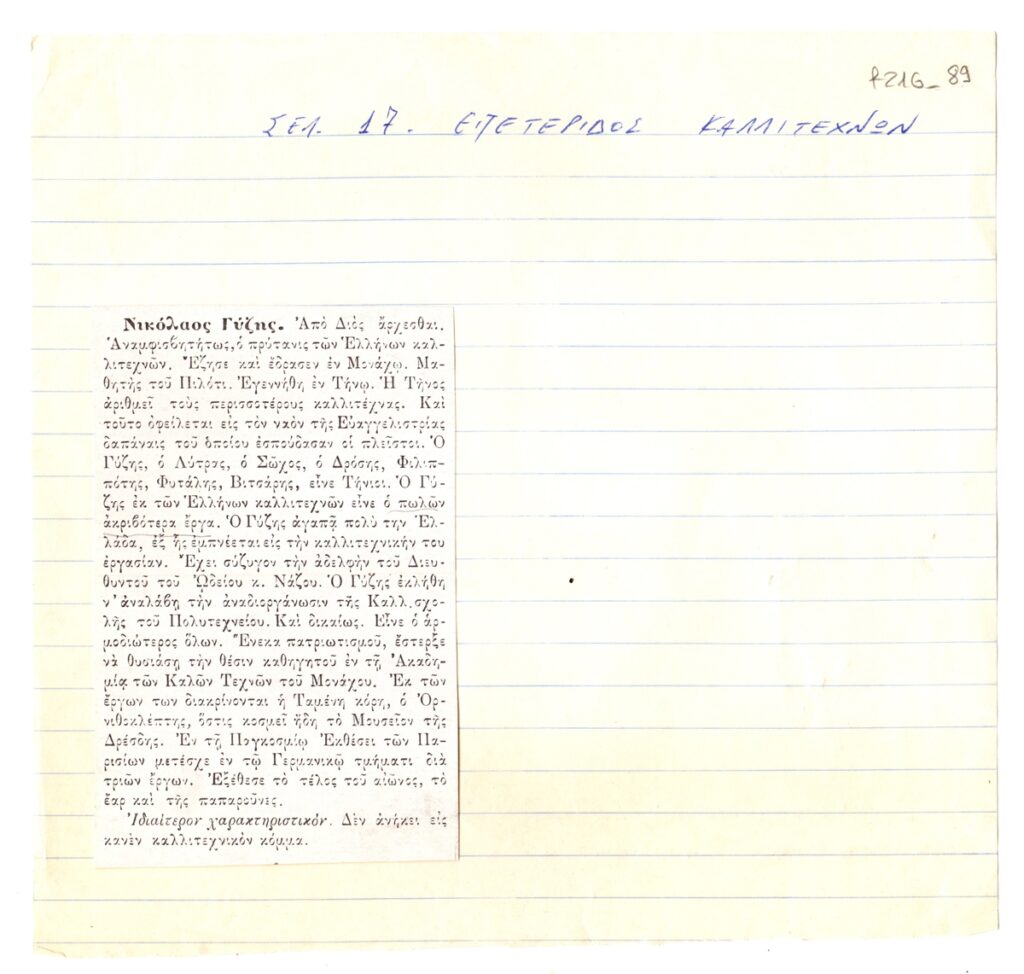 P21G_89
ΣΕΛ. 17. ΕΠΕΤΕΡΙΔΟΣ ΚΑΛΛΙΤΕΧΝΩΝ
Νικόλαος Γύζης. Ἀπὸ Διὸς ἄρχεσθαι.
Ἀναμφισβητήτως, ὁ πρύτανις τῶν Ἑλλήνων καλ-
λιτεχνῶν. Ἔζησε καὶ ἔδρασεν ἐν Μονάχῳ. Μα-
θητὴς τοῦ Πιλότι. Ἐγεννήθη ἐν Τήνῳ. Ἡ Τῆνος
ἀριθμεῖ τοὺς περισσοτέρους καλλιτέχνας. Καὶ
τοῦτο ὀφείλεται εἰς τὸν ναὸν τῆς Εὐαγγελιστρίας
δαπάναις τοῦ ὁποίου ἐσπούδασαν οἱ πλεῖστοι. Ὁ
Γύζης, ὁ Λύτρας, ὁ Σῶχος, ὁ Δρόσης, Φιλιπ-
πότης, Φυτάλης, Βιτσάρης, εἶνε Τήνιοι. Ὁ Γύ-
ζης ἐκ τῶν Ἑλλήνων καλλιτεχνῶν εἶνε ὁ πωλῶν
ἀκριβότερα ἔργα. Ὁ Γύζης ἀγαπᾷ πολὺ την Ἑλ-
λάδα, ἐξ ἧς ἐμπνέεται εἰς τὴν καλλιτεχνικήν του
ἐργασίαν. Ἔχει σύζυγον τὴν ἀδελφὴν τοῦ Διευ-
θυντοῦ τοῦ Ὠδείου κ. Νάζου. Ὁ Γύζης ἐκλήθη
ν' ἀναλάβῃ τὴν ἀναδιοργάνωσιν τῆς Καλλ. σχο-
λῆς τοῦ Πολυτεχνείου. Καὶ δικαίως. Εἶνε ὁ ἁρ-
μοδιώτερος ὅλων. Ἕνεκα πατριωτισμοῦ, ἔστερξε
νὰ θυσιάσῃ τὴν θέσιν καθηγητοῦ ἐν τῇ Ἀκαδη-
μίᾳ τῶν Καλῶν Τεχνῶν τοῦ Μονάχου. Ἐκ τῶν
ἔργων των διακρίνονται ἡ Ταμένη κόρη, ὁ Ὀρ-
νιθοκλέπτης, ὅστις κοσμεῖ ἤδη τὸ Μουσεῖον τῆς
Δρέσδης. Ἐν τῇ Παγκοσμίῳ Ἐκθέσει τῶν Πα-
ρισίων μετέσχε ἐν τῷ Γερμανικῷ τμήματι διὰ
τριῶν ἔργων. Ἐξέθεσε τὸ τέλος τοῦ αἰῶνος, τὸ
ἔαρ καὶ τῆς παπαροῦνες.
Ἰδιαίτερον χαρακτηριστικόν. Δὲν ἀνήκει εἰς
κανὲν καλλιτεχνικὸν κόμμα.